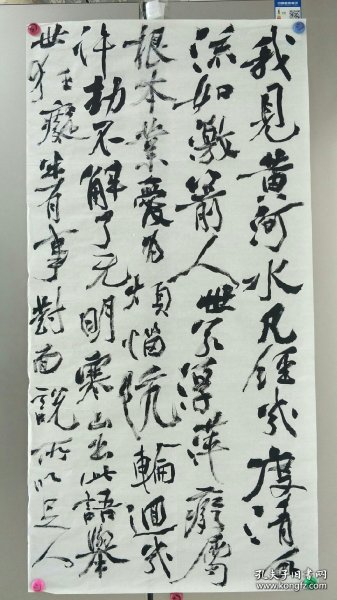 我見黄河水凡經幾度清水
流如激箭人世若浮萍癡屬
根本業愛為煩惱坑輪迴幾
許劫不解了无明寒山出此語舉
世狂癡半有事對面說所以足人
孔夫子旧书网